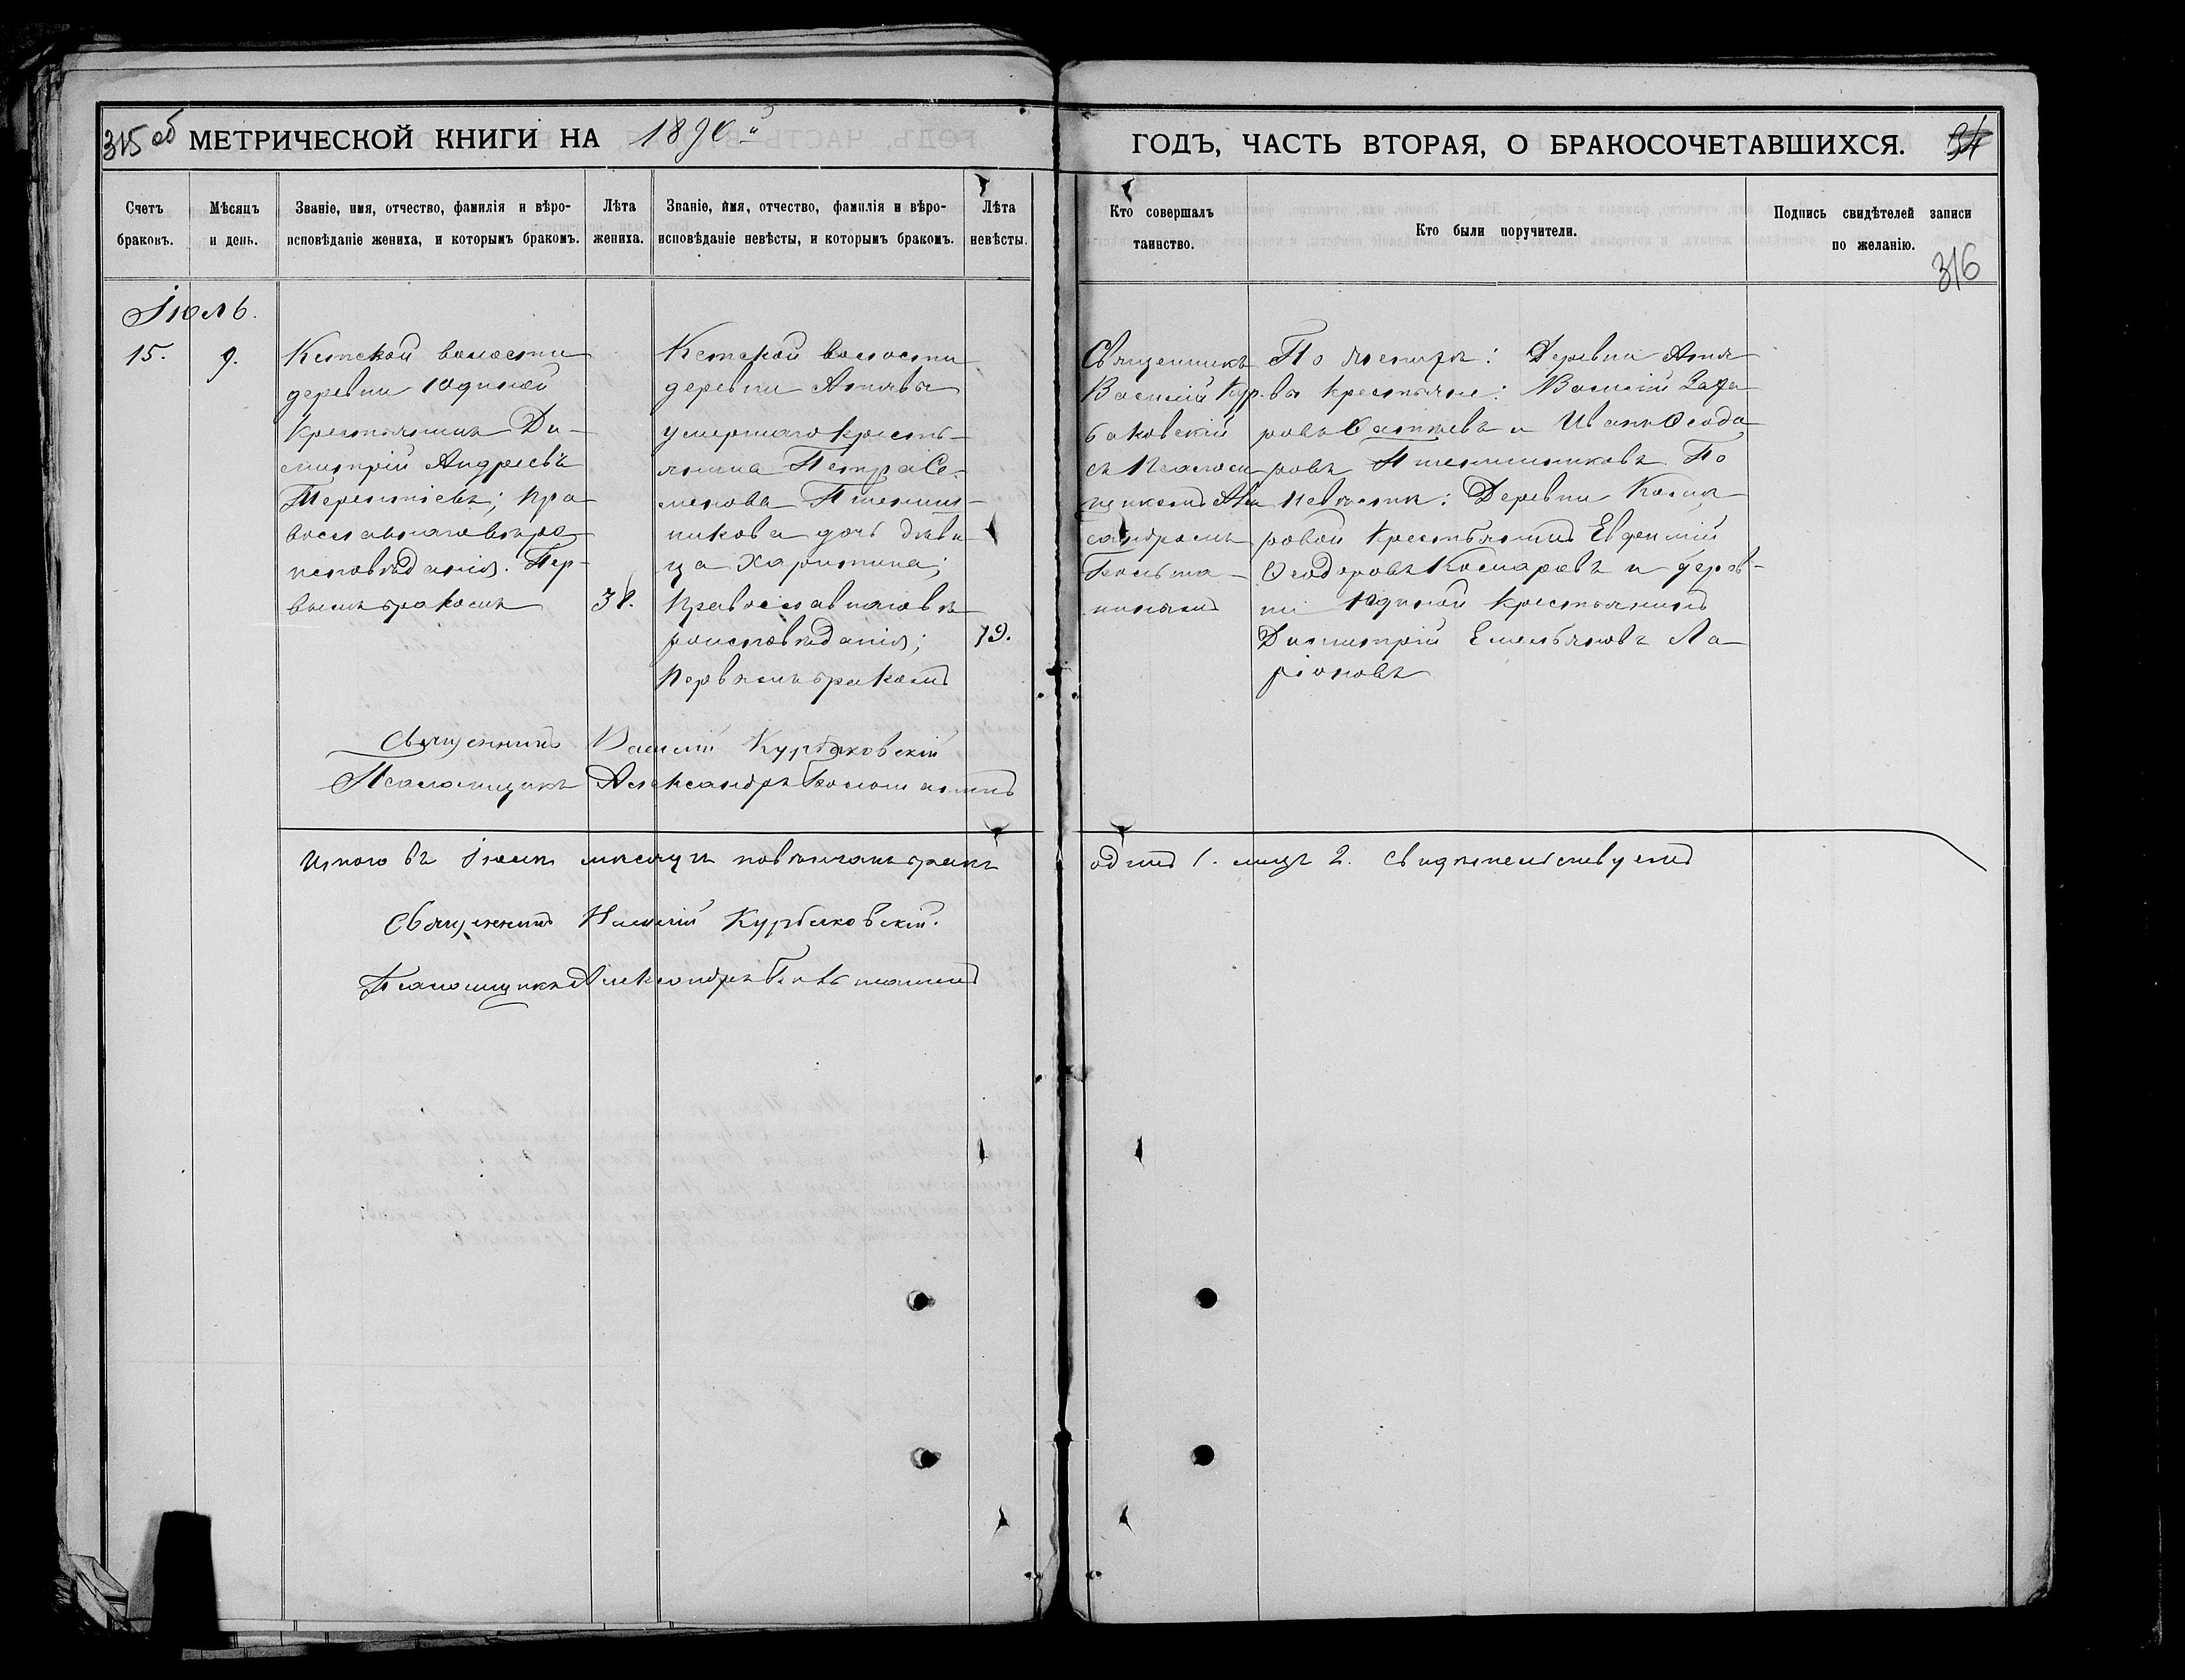 315 об МЕТРИЧЕСКОЙ КНИГИ НА 1890й
ГОДЪ, ЧАСТЬ ВТОРАЯ, О БРАКОСОЧЕТАВШИХСЯ.
316
Счетъ
браковъ.
Мѣсяцъ
и день.
Званіе, имя, отчество, фамилія и вѣро-
исповѣданіе жениха, и которымъ бракомъ.
Лѣта
жениха.
Званіе, имя, отчество, фамилія и вѣро-
исповѣданіе невѣсты, и которымъ бракомъ.
Лѣта
невѣсты.
Кто совершалъ
таинство.
Кто были поручители.
Подпись свидѣтелей записи
по желанію.
Іюль.
15.
9.
Кетской волости
деревни Юдиной
крестьянинъ Ди-
митрій Андреевъ
Терентіевъ; пра
вославнаго вѣро
исповѣданія. Пер-
вымъ бракомъ
Кетской волости
деревни
умершаго кресть-
янина Петра Се-
менова Пшенич-
никова дочь дѣви
ца Харитина;
православнаго вѣ
роисповѣданія;
первымъ бракомъ
19.
Священникъ
Василій Кур-
баковскій
съ псалом
щикомъ Але
сандромъ
По женихѣ: Деревни
вы крестьяне: Василій Заха
ровъ и Иванъ Ѳеодо
ровъ Пшенничниковъ. По
невѣстѣ: Деревни Кома
ровой крестьянинъ Евфимій
Ѳеодоровъ Комаровъ и дерев-
ни Юдиной крестьянинъ
Димитрій Емельяновъ Ла
ріоновъ
Священникъ Василій Курбаковскій
Псаломщикъ Александръ
Итого въ Іюлѣ мѣсяцѣ повѣнчанъ бракъ
одинъ 1. лицъ 2. свидѣтельствуемъ
Священникъ Василій Курбаковскій.
Псаломщикъ Александръ